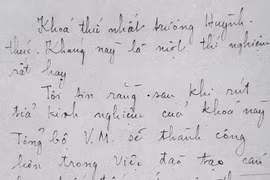 Khoá thứ nhất trường Huỳnh-
thúc-Kháng này là một thí nghiệm
rất hay
Tôi tin rằng sau khi rút
kinh nghiệm của khoá này
Tổng bộ V.M. sẽ thành công
hơn trong việc đào tạo cán